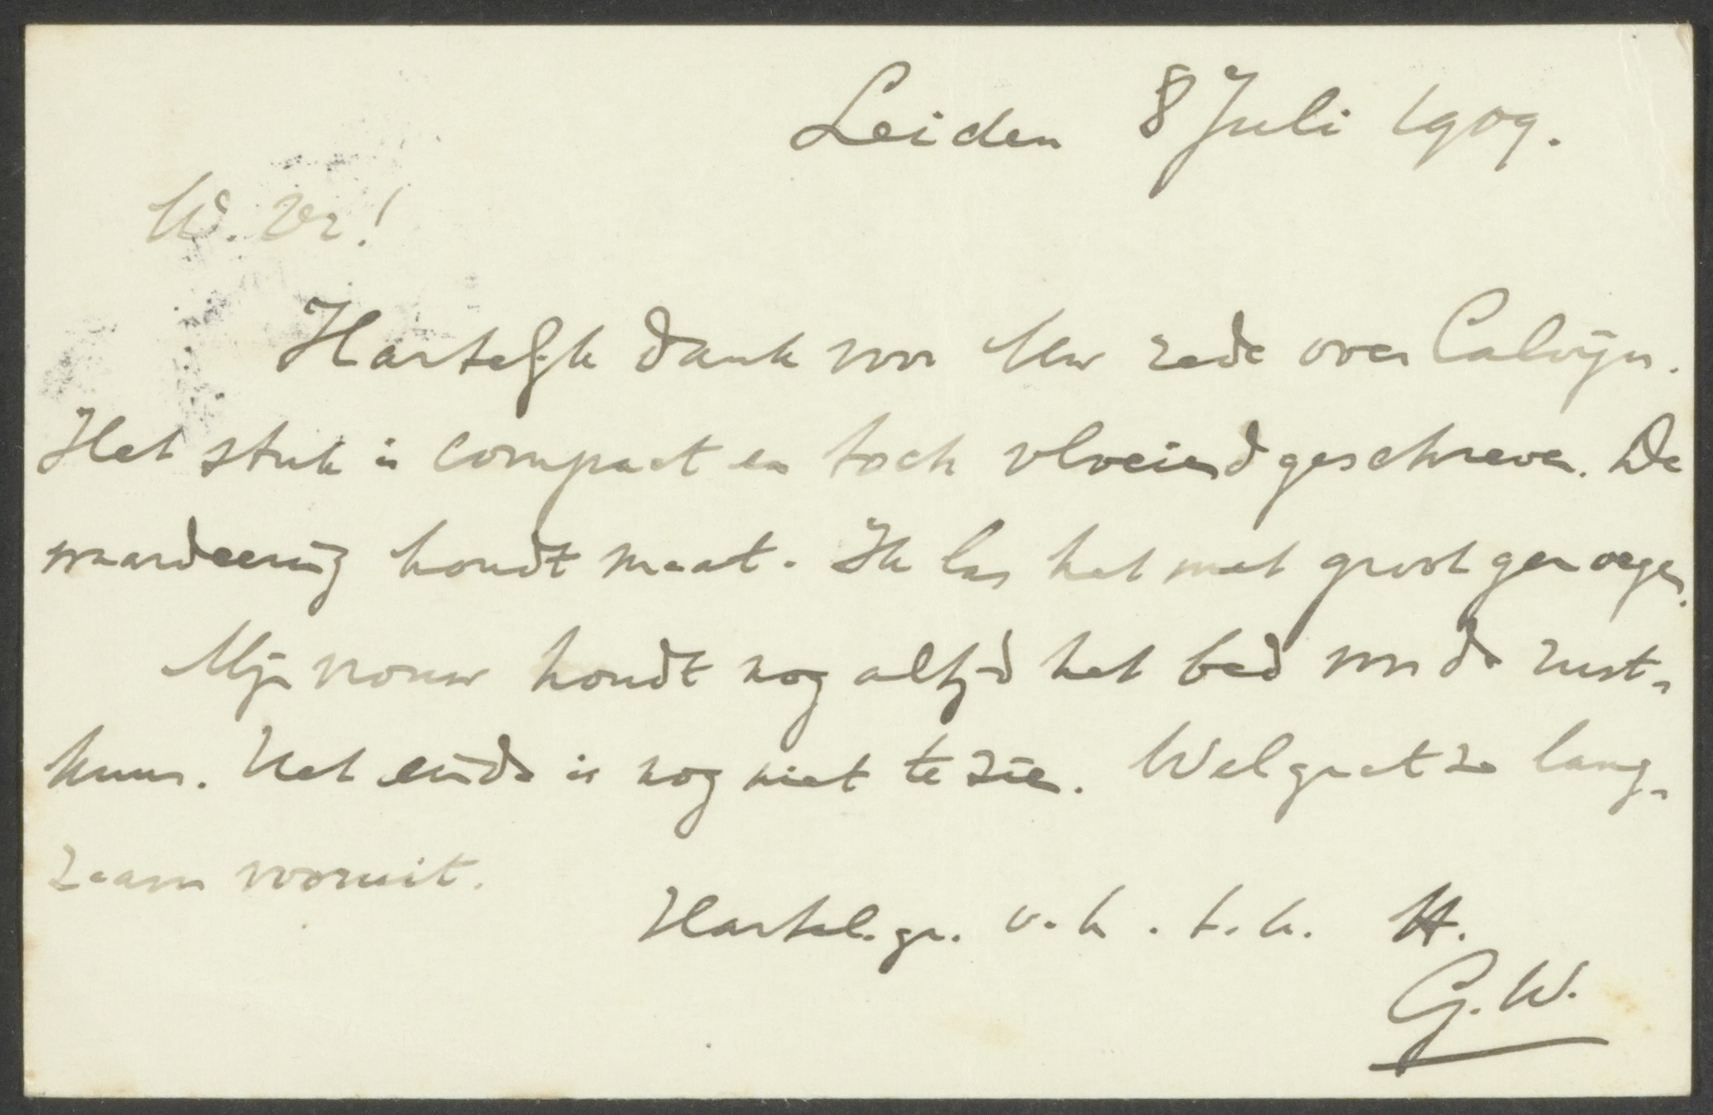 Leiden 8 Juli 1909.
W. Vr!
Hartelijk dank voor Uw rede over Calvijn.
Het stuk is compact en toch vloeiend geschreven. De
waardeering houdt maat. Ik las het met groot genoegen.
Mijn vrouw houdt nog altijd het bed voor de rust-
kuur. Het einde is nog niet te zien. Wel gaat ze lang-
zaam vooruit.
Hartel. gr. v. h. t. h. H.
G. W.